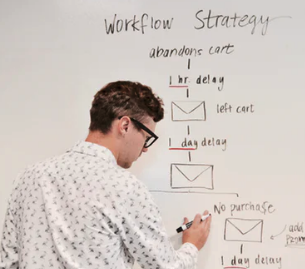 Workflow Strategy
abandons cart
1 hr. delay
left cart
1 day delay
No purchase
add
1 day delay